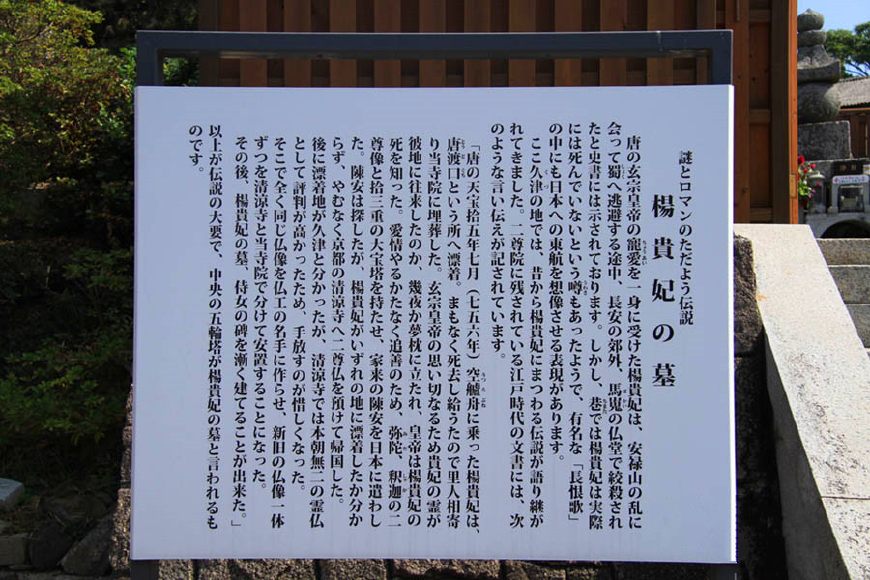 謎とロマンのただよう伝説
楊貴妃の墓
唐の玄宗皇帝の寵愛を一身に受けた楊貴妃は、安禄山の乱に
会って蜀へ逃避する途中、長安の郊外、馬嵬の仏堂で絞殺され
たと史書には示されております。しかし、巷では楊貴妃は実際
には死んでいないという噂もあったようで、有名な「長恨歌」
の中にも日本への東航を想像させる表現があります。
ここ久津の地では、昔から楊貴妃にまつわる伝説が語り継が
れてきました。二尊院に残されている江戸時代の文書には、次
のような言い伝えが記されています。
「唐の天宝拾五年七月（七五六年）空艫舟に乗った楊貴妃は、
唐渡口という所へ漂着。まもなく死去し給うたので里人相寄
り当寺院に埋葬した。玄宗皇帝の思い切なるため貴妃の霊が
彼地に往来したのか、幾夜か夢枕に立たれ、皇帝は楊貴妃の
死を知った。愛情やるかたなく追善のため、弥陀、釈迦の二
尊像と拾三重の大宝塔を持たせ、家来の陳安を日本に遣わし
た。陳安は探したが、楊貴妃がいずれの地に漂着したか分か
らず、やむなく京都の清涼寺へ二尊仏を預けて帰国した。
後に漂着地が久津と分かったが、清涼寺では本朝無二の霊仏
として評判が高かったため、手放すのが惜しくなった。
そこで全く同じ仏像を仏工の名手に作らせ、新旧の仏像一体
ずつを清涼寺と当寺院で分けて安置することになった。
その後、楊貴妃の墓、侍女の碑を漸く建てることが出来た。」
以上が伝説の大要で、中央の五輪塔が楊貴妃の墓と言われるも
のです。